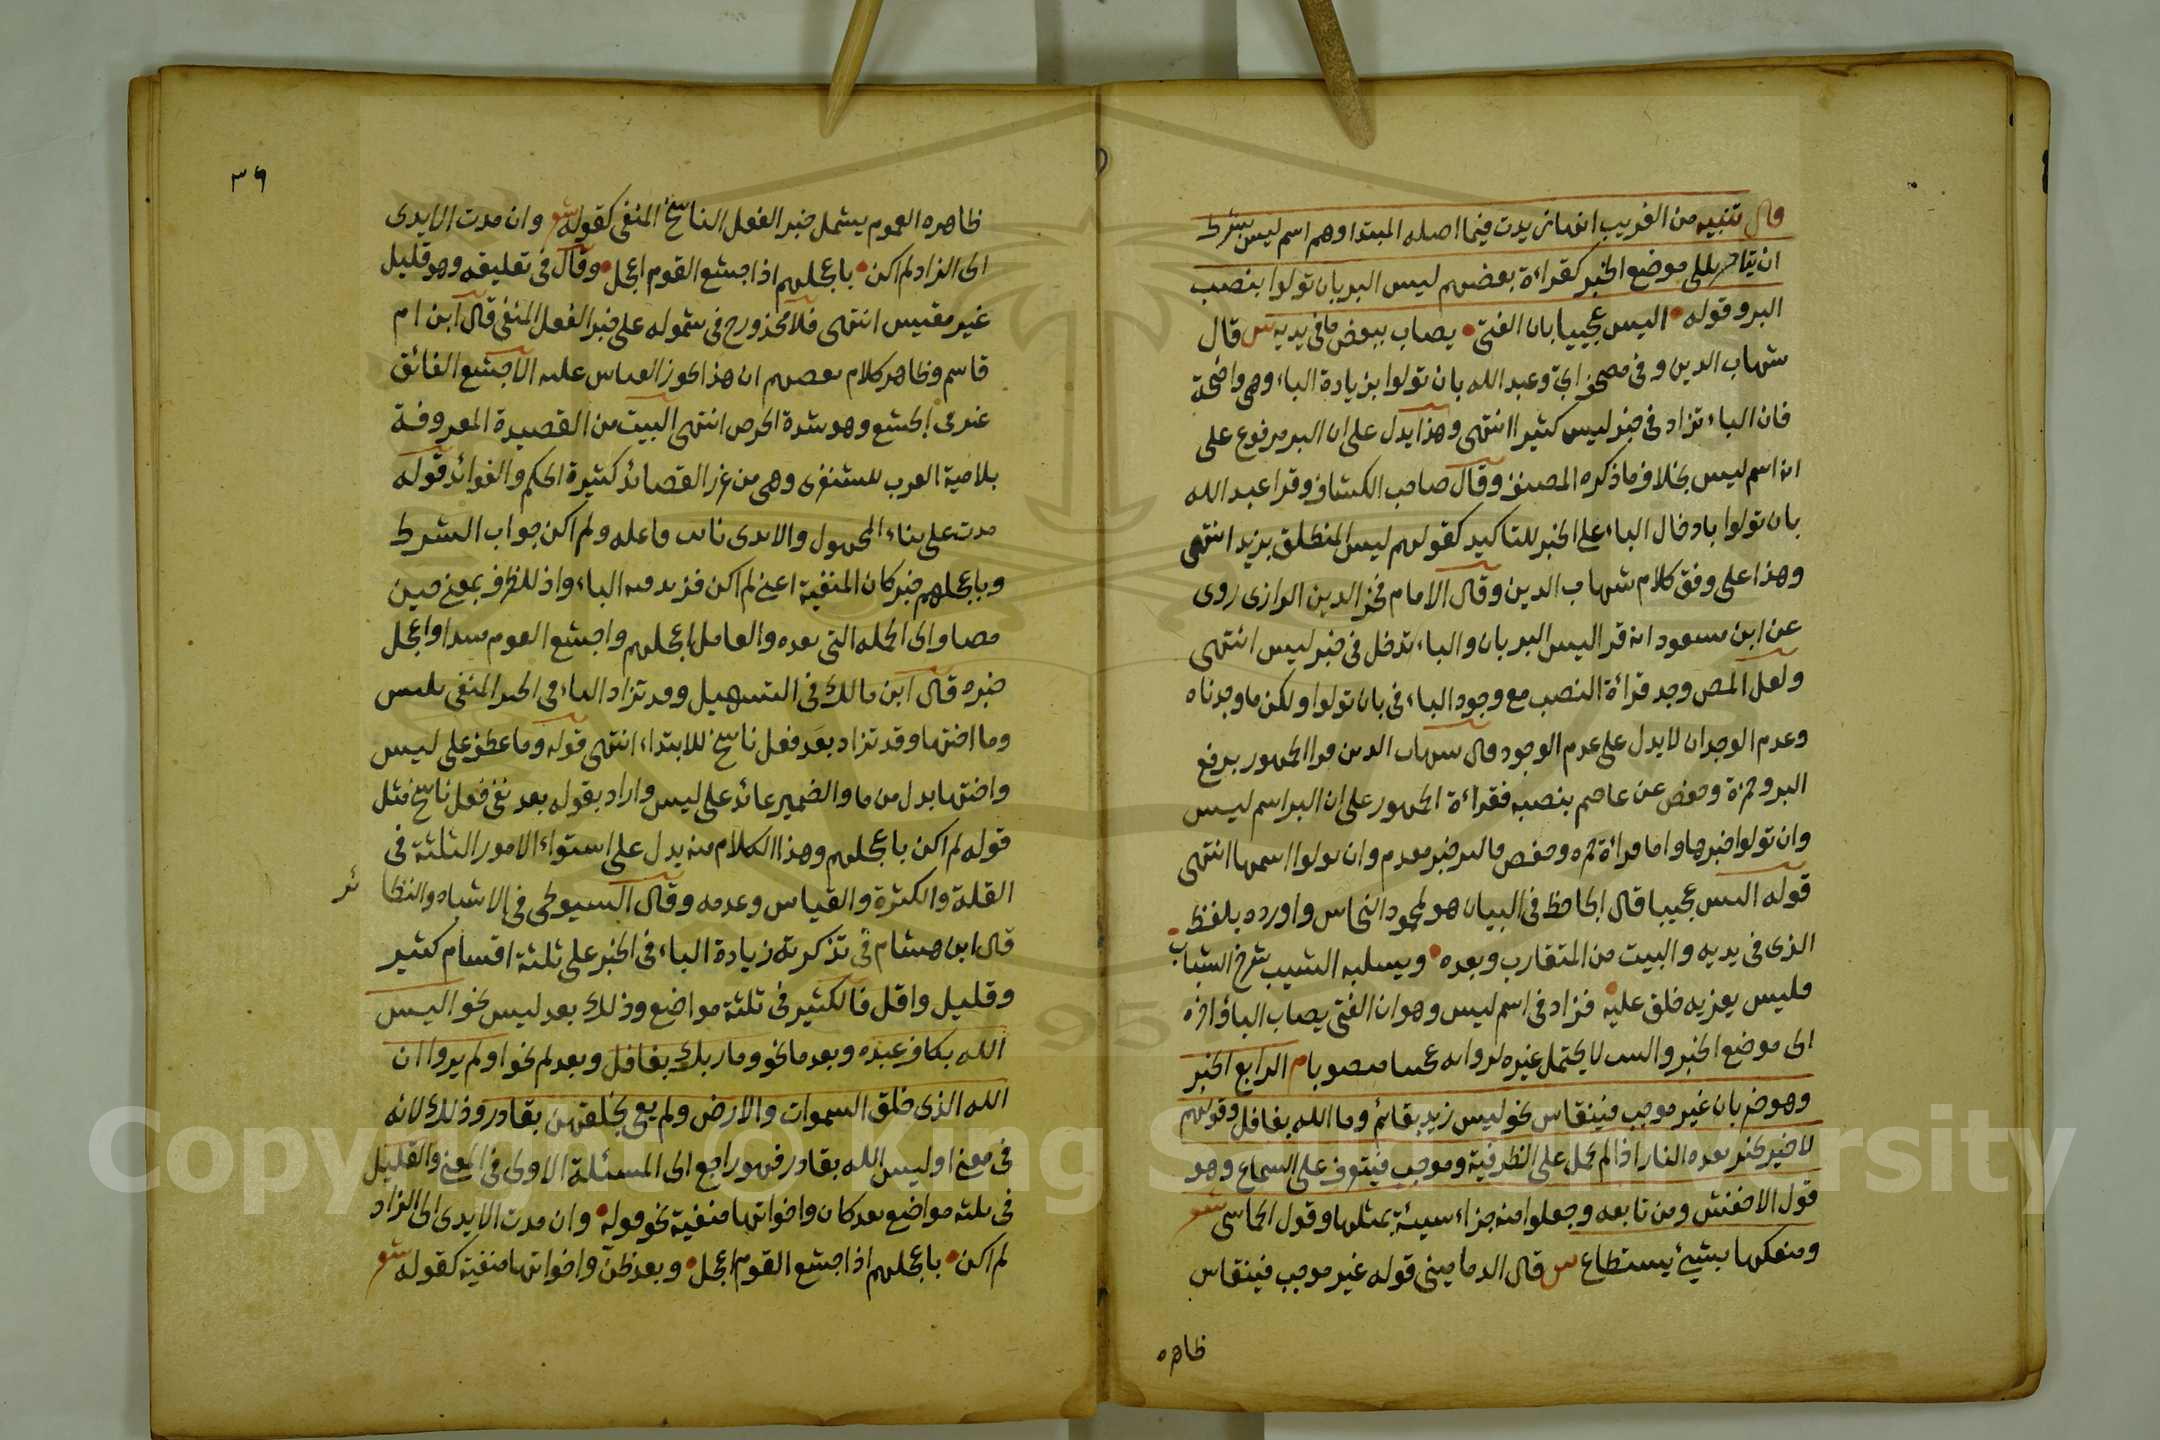 قال تنبيه من الغريب انها زيدت فيما اصله المبتدا وهم اسم ليس بشرط
ان يتاخر الى موضع الخبر كقراءة بعضهم ليس البر بان تولوا بنصب
البر وقوله • اليس عجيبا بان الفتى • يصاب ببعض ما فى يديه س قال
شهاب الدين وفى مصحف ابيّ وعبد الله بان تولوا بزيادة الباء وهى واضحة
فان الباء تزاد فى خبر ليس كثيرا انتهى وهذا يدل على ان البر مرفوع على
انه اسم ليس بخلاف ما ذكره المصنف وقال صاحب الكشاف وقرا عبد الله
بان تولوا بادخال الباء على الخبر للتاكيد كقولهم ليس المنطلق بزيد انتهى
وهذا على وفق كلام شهاب الدين وقال الامام فخر الدين الرازى روى
عن ابن مسعود انه قرا ليس البر بان والباء تدخل فى خبر ليس انتهى
ولعل المص وجد قرائة النصب مع وجود الباء فى بان تولوا ولكن ما وجدناه
وعدم الوجدان لا يدل على عدم الوجود قال شهاب الدين قرا الجمهور برفع
البر وحمزة وحفص عن عاصم بنصبه فقراءة الجمهور على ان البر اسم ليس
وان تولوا خبرها واما قراءة حمزه وحفص فالبر خبر مقدم وان تولوا اسمها انتهى
قوله اليس عجيبا قال الجاحظ فى البيان هو لمحمود النحاس واورده بلفظ
الذى فى يديه والبيت من المتقارب وبعده • ويسلبه الشيب شرخ الشباب •
فليس يعزيه خلق عليه • فزاد فى اسم ليس وهو ان الفتى يصاب الباء واخره
الى موضع الخبر والبيت لا يحتمل غيره لروايه عجيبا منصوبا م الرابع الخبر
وهو ضربان غير موجب فينقاس نحو ليس زيد بقائم وما الله بغافل وقولهم
لا خير بخير بعده النار اذا لم تحمل على الظرفية وموجب فيتوقف على السماع وهو
قول الاخفش ومن تابعه وجعلوا منه جزاء سيئة بمثلها وقول الحماسى شعر
ومنعكها بشيئ يستطاع س قال الدمامينى قوله غير موجب فينقاس
ظاهره
٣٦
ظاهره العموم يشمل خبر الفعل الناسخ المنفى كقوله شعر وان مدت الايدى
الى الزاد لم اكن • باعجلهم اذ اجشع القوم اعجل • وقال فى تعليقه وهو قليل
غير مقيس انتهى فلا محذور ح فى شموله على خبر الفعل المنفى قال ابن ام
قاسم وظاهر كلام بعضهم ان هذا يجوز القياس عليه الاجشع الفائق
غيره فى الجشع وهو شدة الحرص انتهى البيت من القصيدة المعروفة
بلامية العرب للشنفرى وهى من غرر القصائد كثيرة الحكم والفوائد قوله
مدت على بناء المجهول والايدى نائب فاعله ولم اكن جواب الشرط
وباعجلهم خبر كان المنفية اعنى لم اكن فزيد فيه الباء واذ للظرف بمعنى حين
مضاف الى الجمله التى بعده والعامل باعجلهم واجشع القوم مبتدا واعجل
خبره قال ابن مالك فى التسهيل وقد تزاد الباء فى الخبر المنفى بليس
وما اختها وقد تزاد بعد فعل ناسخ للابتداء انتهى قوله وما عطف على ليس
واختها بدل من ما والضمير عائد على ليس واراد بقوله بعد نفى فعل ناسخ مثل
قوله لم اكن باعجلهم وهذا الكلام منه يدل على استواء الامور الثلثة فى
القلة والكثرة والقياس وعدمه وقال السيوطى فى الاشباه والنظا ئر
قال ابن هشام فى تذكرته زيادة الباء فى الخبر على ثلثة اقسام كثير
وقليل واقل فالكثير فى ثلثة مواضع وذلك بعد ليس نحو اليس
الله بكاف عبده وبعد ما نحو وما ربك بغافل وبعد لم نحو اولم يروا ان
الله الذى خلق السموات والارض ولم يعى بخلقهن بقادر وذلك لانه
فى معنى اوليس الله بقادر فهو راجع الى المسئلة الاولى فى المعنى والقليل
فى ثلثه مواضع بعد كان واخواتها منفية نحو قوله • وان مدت الايدى الى الزاد
لم اكن • باعجلهم اذ اجشع القوم اعجل • وبعد ظن واخواتها منفية كقوله شعر
Copyright © King Saud University